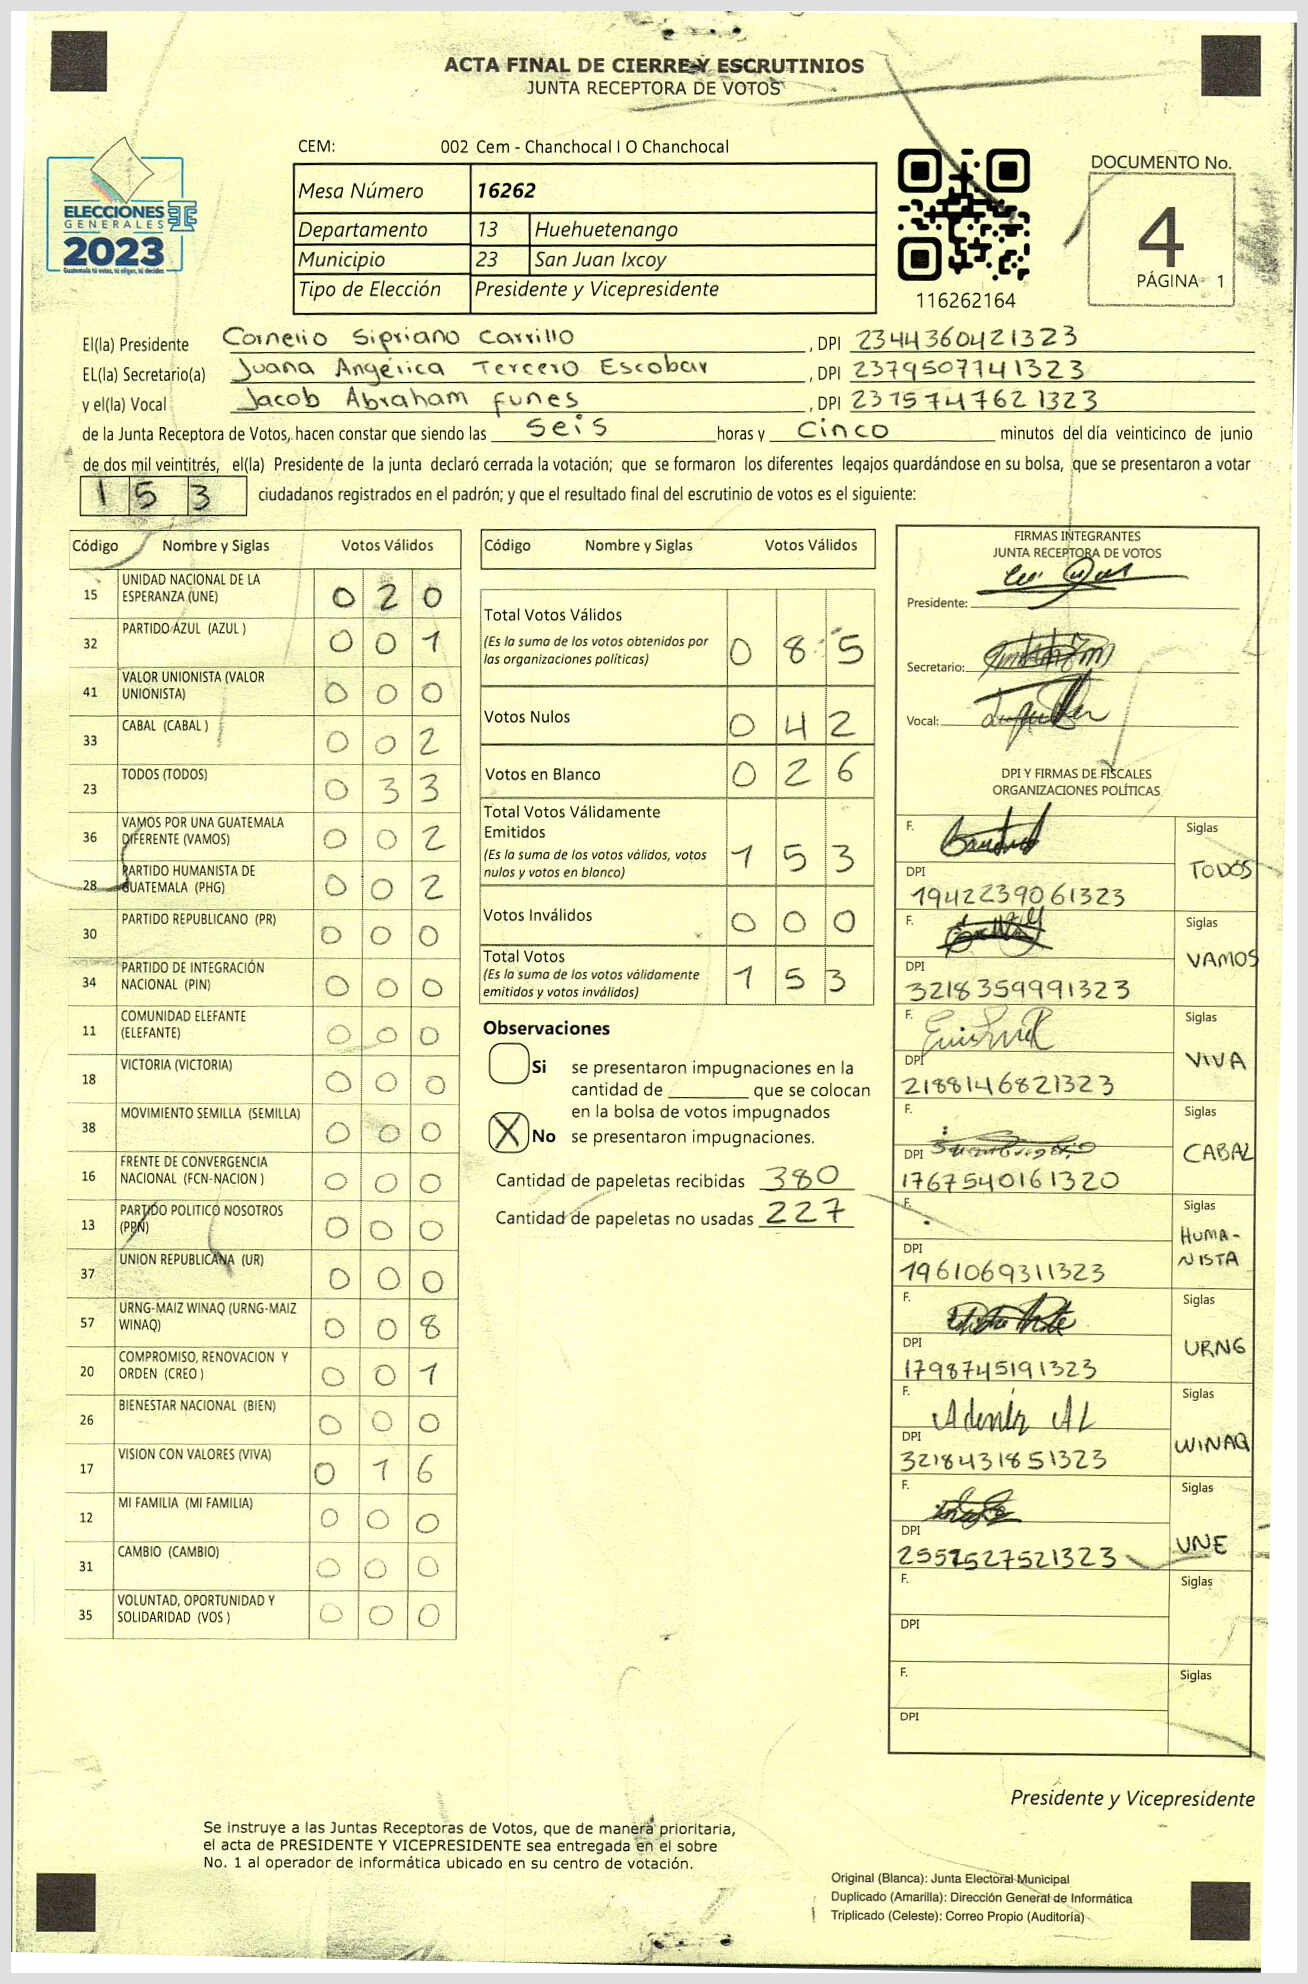 ACTA FINAL DE CIERRE Y ESCRUTINIOS
JUNTA RECEPTORA DE VOTOS
CEM: 002 Cem - Chanchocal I O Chanchocal
DOCUMENTO No.
4
PÁGINA 1
ELECCIONES
GENERALES
2023
Guatemala tú votas, tú eliges, tú decides
Mesa Número 16262
Departamento 13 Huehuetenango
Municipio 23 San Juan Ixcoy
Tipo de Elección Presidente y Vicepresidente
116262164
El(la) Presidente Cornelio Sipriano Carrillo , DPI 2344360421323
EL(la) Secretario(a) Juana Angélica Tercero Escobar , DPI 2379507741323
y el(la) Vocal Jacob Abraham funes , DPI 2375747621323
de la Junta Receptora de Votos, hacen constar que siendo las Seis horas y Cinco minutos del día veinticinco de junio
de dos mil veintitrés, el(la) Presidente de la junta declaró cerrada la votación; que se formaron los diferentes legajos guardándose en su bolsa, que se presentaron a votar
153 ciudadanos registrados en el padrón; y que el resultado final del escrutinio de votos es el siguiente:
Código Nombre y Siglas Votos Válidos
15 UNIDAD NACIONAL DE LA ESPERANZA (UNE) 0 2 0
32 PARTIDO AZUL (AZUL ) 0 0 1
41 VALOR UNIONISTA (VALOR UNIONISTA) 0 0 0
33 CABAL (CABAL ) 0 0 2
23 TODOS (TODOS) 0 3 3
36 VAMOS POR UNA GUATEMALA DIFERENTE (VAMOS) 0 0 2
28 PARTIDO HUMANISTA DE GUATEMALA (PHG) 0 0 2
30 PARTIDO REPUBLICANO (PR) 0 0 0
34 PARTIDO DE INTEGRACIÓN NACIONAL (PIN) 0 0 0
11 COMUNIDAD ELEFANTE (ELEFANTE) 0 0 0
18 VICTORIA (VICTORIA) 0 0 0
38 MOVIMIENTO SEMILLA (SEMILLA) 0 0 0
16 FRENTE DE CONVERGENCIA NACIONAL (FCN-NACION ) 0 0 0
13 PARTIDO POLITICO NOSOTROS (PPN) 0 0 0
37 UNION REPUBLICANA (UR) 0 0 0
57 URNG-MAIZ WINAQ (URNG-MAIZ WINAQ) 0 0 8
20 COMPROMISO, RENOVACION Y ORDEN (CREO ) 0 0 1
26 BIENESTAR NACIONAL (BIEN) 0 0 0
17 VISION CON VALORES (VIVA) 0 1 6
12 MI FAMILIA (MI FAMILIA) 0 0 0
31 CAMBIO (CAMBIO) 0 0 0
35 VOLUNTAD, OPORTUNIDAD Y SOLIDARIDAD (VOS ) 0 0 0
Código Nombre y Siglas Votos Válidos
Total Votos Válidos 0 8 5
(Es la suma de los votos obtenidos por
las organizaciones políticas)
Votos Nulos 0 4 2
Votos en Blanco 0 2 6
Total Votos Válidamente
Emitidos 1 5 3
(Es la suma de los votos válidos, votos
nulos y votos en blanco)
Votos Inválidos 0 0 0
Total Votos 1 5 3
(Es la suma de los votos válidamente
emitidos y votos inválidos)
Observaciones
Si se presentaron impugnaciones en la
cantidad de ________ que se colocan
en la bolsa de votos impugnados
X No se presentaron impugnaciones.
Cantidad de papeletas recibidas 380
Cantidad de papeletas no usadas 227
FIRMAS INTEGRANTES
JUNTA RECEPTORA DE VOTOS
Presidente:
Secretario:
Vocal:
DPI Y FIRMAS DE FISCALES
ORGANIZACIONES POLÍTICAS
F. Siglas
TODOS
DPI
1942239061323
F. Siglas
VAMOS
DPI
3218359991323
F. Siglas
VIVA
DPI
2188146821323
F. Siglas
CABAL
DPI
1767540161320
F. Siglas
HUMA-
NISTA
DPI
1961069311323
F. Siglas
URNG
DPI
1798745191323
F. Siglas
WINAQ
DPI
3218431851323
F. Siglas
UNE
DPI
2551527521323
F. Siglas
DPI
F. Siglas
DPI
Presidente y Vicepresidente
Se instruye a las Juntas Receptoras de Votos, que de manera prioritaria,
el acta de PRESIDENTE Y VICEPRESIDENTE sea entregada en el sobre
No. 1 al operador de informática ubicado en su centro de votación.
Original (Blanca): Junta Electoral Municipal
Duplicado (Amarilla): Dirección General de Informática
Triplicado (Celeste): Correo Propio (Auditoría)